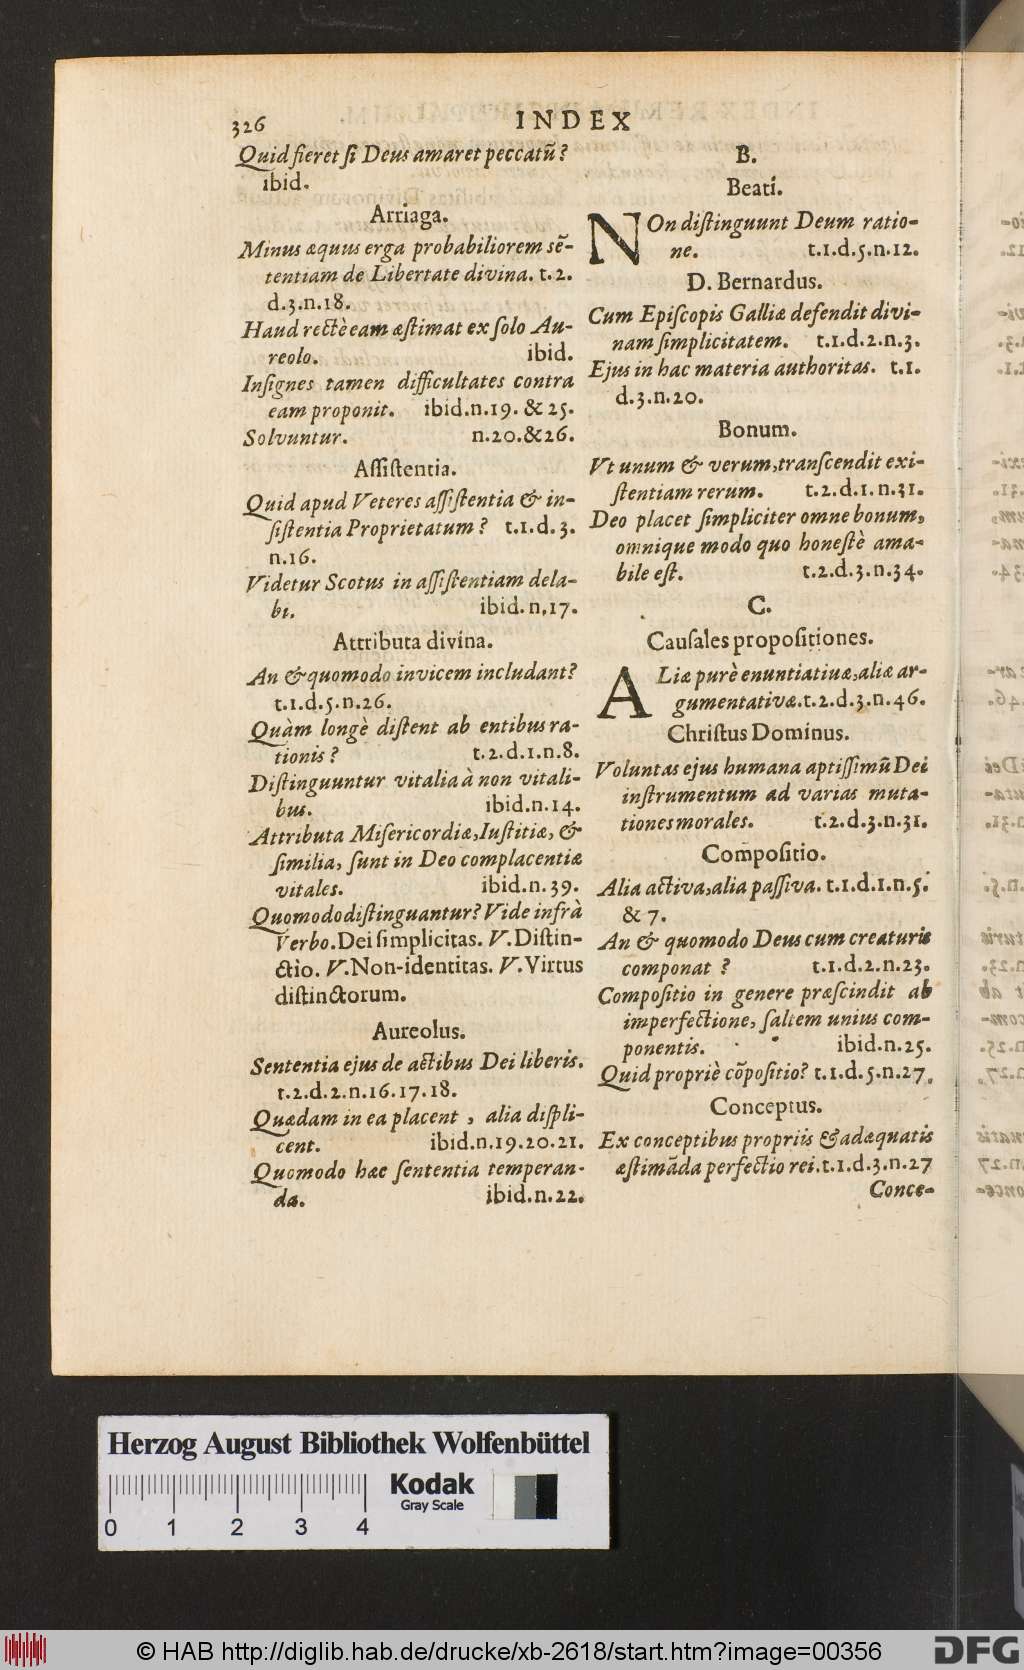 326
INDEX
Quid fieret ſi Deus amaret peccatũ?
ibid.
Arriaga.
Minus æquus erga probabiliorem sẽ-
tentiam de Libertate divina. t.2.
d.3.n.18.
Haud rectè eam æſtimat ex ſolo Au-
reolo. ibid.
Inſignes tamen difficultates contra
eam proponit. ibid.n.19. & 25.
Solvuntur. n.20.&26.
Aſſiſtentia.
Quid apud Veteres aſſiſtentia & in-
ſiſtentia Proprietatum? t.1.d.3.
n.16.
Videtur Scotus in aſſiſtentiam dela-
bi. ibid.n,17.
Attributa divina.
An & quomodo invicem includant?
t.1.d.5.n.26.
Quàm longè diſtent ab entibus ra-
tionis? t.2.d.1.n.8.
Diſtinguuntur vitalia à non vitali-
bus. ibid.n.14.
Attributa Miſericordiæ, Iuſtitiæ, &
ſimilia, ſunt in Deo complacentiæ
vitales. ibid.n.39.
Quomodo diſtinguantur? Vide infrà
Verbo. Dei ſimplicitas. V. Diſtin-
ctio. V. Non-identitas. V. Virtus
diſtinctorum.
Aureolus.
Sententia ejus de actibus Dei liberis.
t.2.d.2.n.16.17.18.
Quædam in ea placent, alia diſpli-
cent. ibid.n.19.20.21.
Quomodo hæc ſententia temperan-
da. ibid.n.22.
B.
Beati.
NOn diſtinguunt Deum ratio-
ne. t.1.d.5.n.12.
D. Bernardus.
Cum Epiſcopis Galliæ defendit divi-
nam ſimplicitatem. t.1.d.2.n.3.
Ejus in hac materia authoritas. t.1.
d.3.n.20.
Bonum.
Vt unum & verum, tranſcendit exi-
ſtentiam rerum. t.2.d.1.n.31.
Deo placet ſimpliciter omne bonum,
omnique modo quo honeſtè ama-
bile eſt. t.2.d.3.n.34.
C.
Cauſales propoſitiones.
ALiæ purè enuntiativæ, aliæ ar-
gumentativæ. t.2.d.3.n.46.
Chriſtus Dominus.
Voluntas ejus humana aptiſſimũ Dei
inſtrumentum ad varias muta-
tiones morales. t.2.d.3.n.31.
Compoſitio.
Alia activa, alia paſſiva. t.1.d.1.n.5.
& 7.
An & quomodo Deus cum creaturis
componat? t.1.d.2.n.23.
Compoſitio in genere præſcindit ab
imperfectione, ſaltem unius com-
ponentis. ibid.n.25.
Quid propriè cõpoſitio? t.1.d.5.n.27.
Conceptus.
Ex conceptibus propriis & adæquatis
æſtimãda perfectio rei. t.1.d.3.n.27
Conce-
Herzog August Bibliothek Wolfenbüttel
Kodak
Gray Scale
0 1 2 3 4
© HAB http://diglib.hab.de/drucke/xb-2618/start.htm?image=00356
DFG